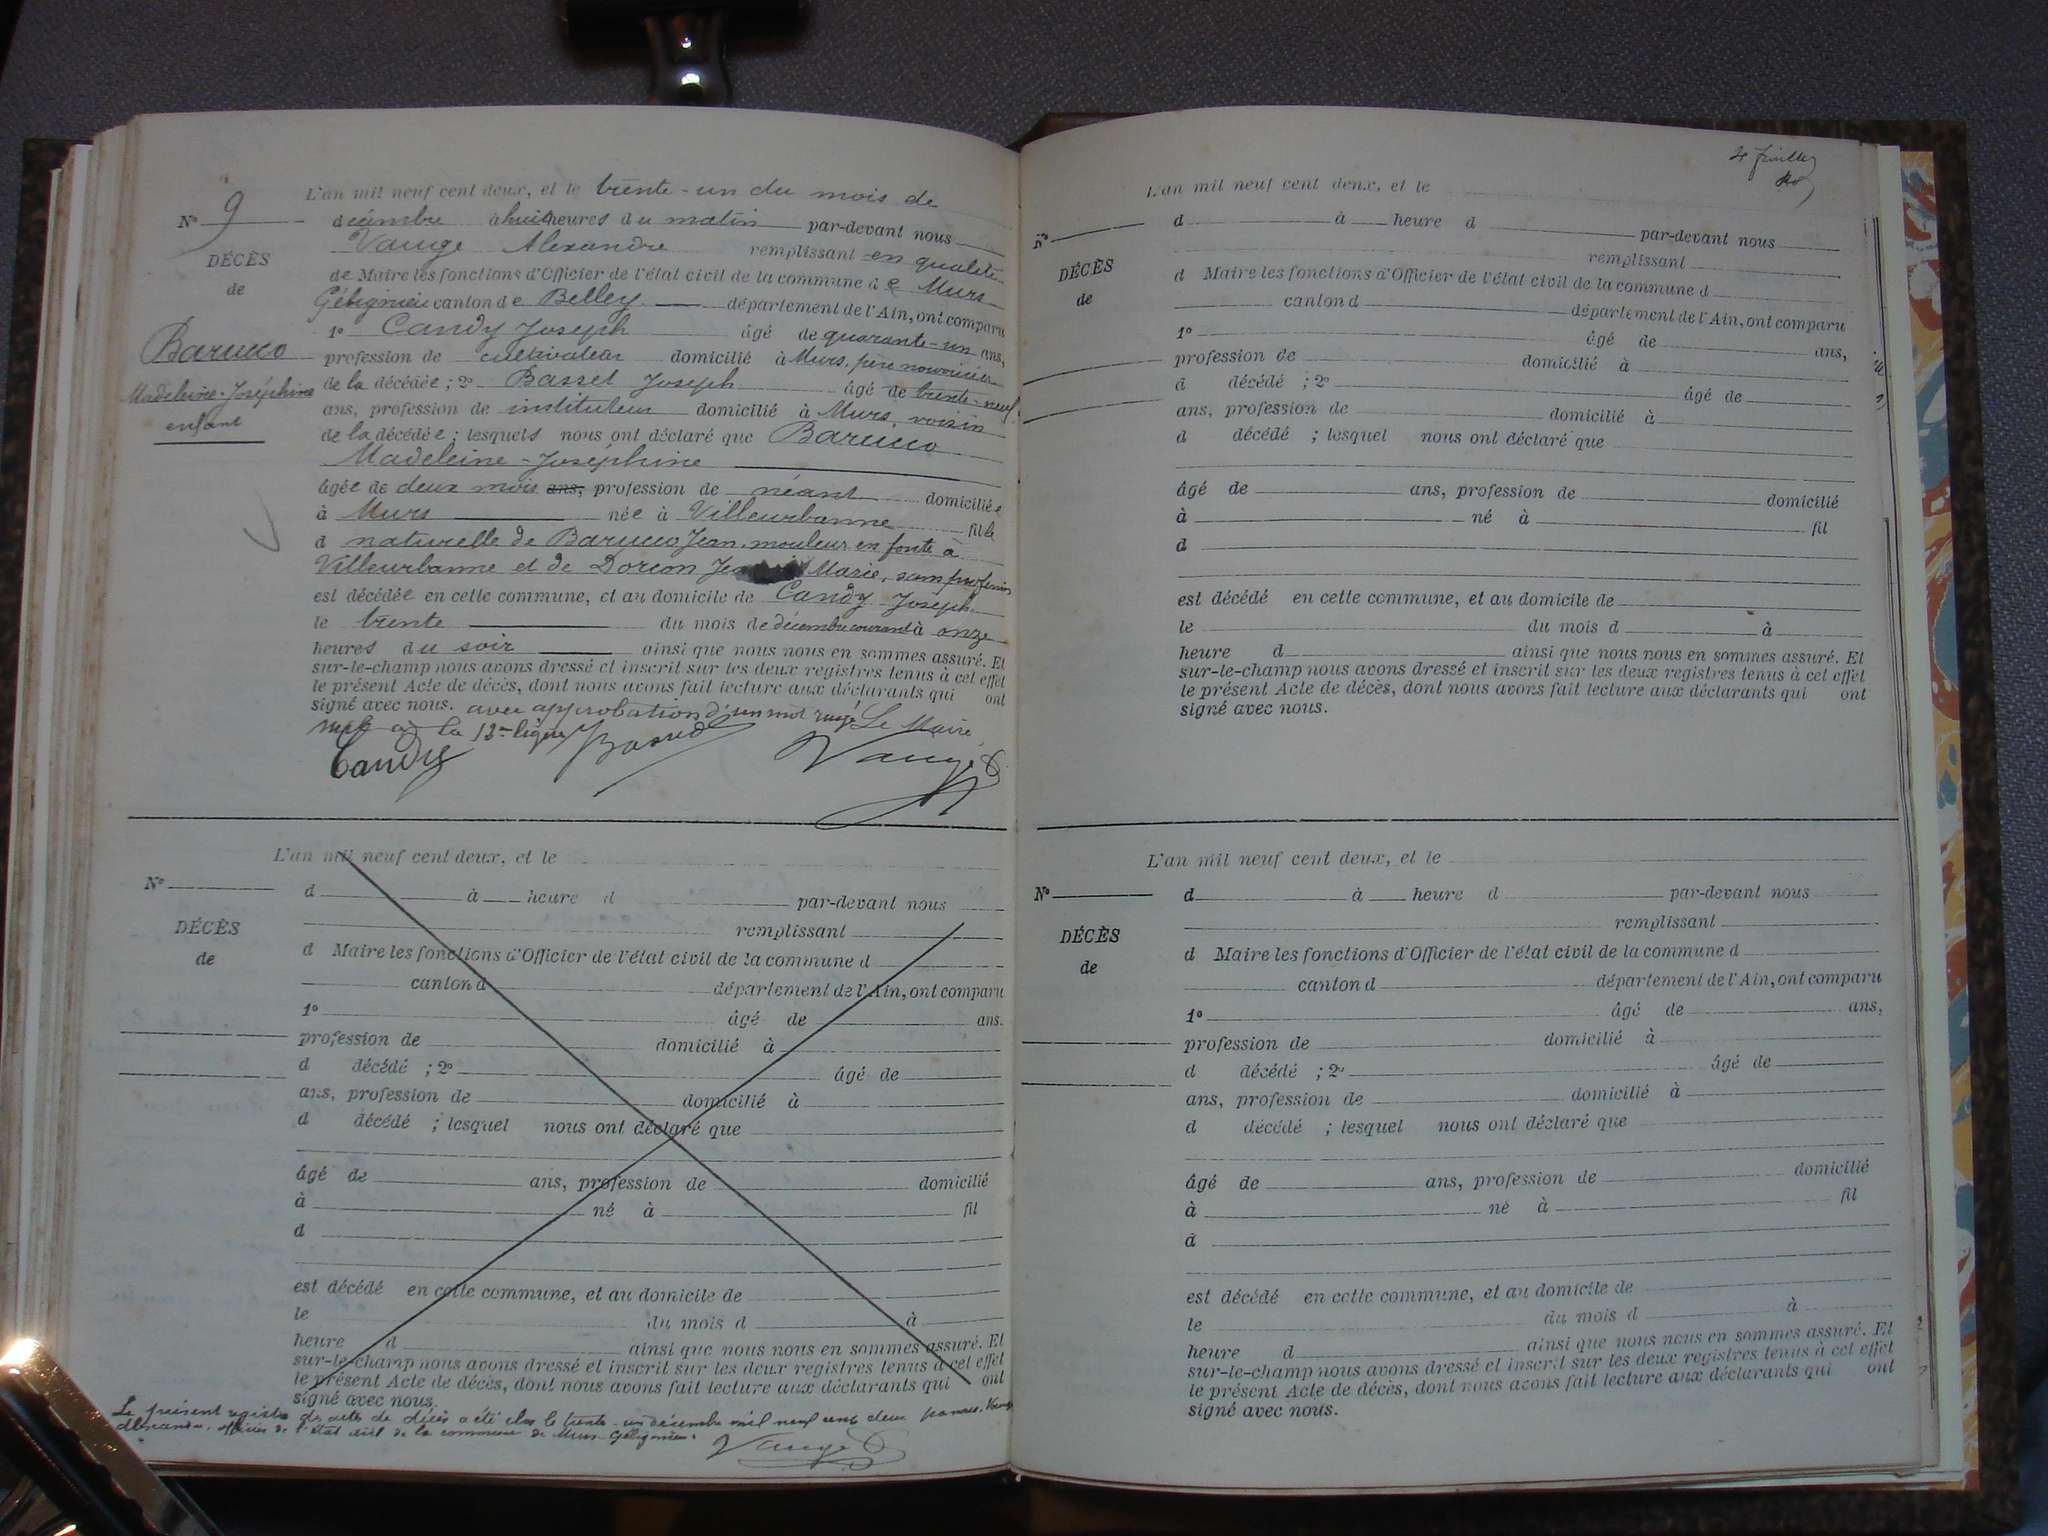 9
L'an mil neuf cent deux, et le trente-un du mois de
N° décembre à huit heures du matin par-devant nous
Vauge Alexandre remplissant en qualité
DÉCÈS
de Maire les fonctions d'Officier de l'état civil de la commune de Murs
de
Gélignieu canton de Belley département de l'Ain, ont comparu
1° Candy Joseph âgé de quarante-un ans,
Barucco
profession de cultivateur domicilié à Murs, père nourricier
Madeleine-Joséphine
de la décédée ; 2° Basset Joseph âgé de trente-neuf
enfant
ans, profession de instituteur domicilié à Murs, voisin
de la décédée ; lesquels nous ont déclaré que Barucco
Madeleine-Joséphine
âgée de deux mois ans, profession de néant domiciliée
à Murs née à Villeurbanne fille
d naturelle de Barucco Jean, mouleur en fonte à
Villeurbanne et de Dorcon Marie, sans profession
est décédée en cette commune, et au domicile de Candy Joseph
le trente du mois de décembre courant à onze
heures du soir ainsi que nous nous en sommes assuré. Et
sur-le-champ nous avons dressé et inscrit sur les deux registres tenus à cet effet
le présent Acte de décès, dont nous avons fait lecture aux déclarants qui ont
signé avec nous. avec approbation d'un mot rayé Le Maire,
nul à la 12me ligne
Candy Basset Vauge
L'an mil neuf cent deux, et le
N° d à heure d par-devant nous
remplissant
DÉCÈS
d Maire les fonctions d'Officier de l'état civil de la commune d
de
canton d département de l'Ain, ont comparu
1° âgé de ans.
profession de domicilié à
d décédé ; 2° âgé de
ans, profession de domicilié à
d décédé ; lesquel nous ont déclaré que
âgé de ans, profession de domicilié
à né à fil
d
est décédé en cette commune, et au domicile de
le du mois d à
heure d ainsi que nous nous en sommes assuré. Et
sur-le-champ nous avons dressé et inscrit sur les deux registres tenus à cet effet
le présent Acte de décès, dont nous avons fait lecture aux déclarants qui ont
signé avec nous.
Le présent registre des actes de décès a été clos le trente-un décembre mil neuf cent deux par nous, Vauge
Alexandre, officier de l'état civil de la commune de Murs-Gélignieu.
Vauge
L'an mil neuf cent deux, et le
N° d à heure d par-devant nous
remplissant
DÉCÈS
d Maire les fonctions d'Officier de l'état civil de la commune d
de
canton d département de l'Ain, ont comparu
1° âgé de ans,
profession de domicilié à
d décédé ; 2° âgé de
ans, profession de domicilié à
d décédé ; lesquel nous ont déclaré que
âgé de ans, profession de domicilié
à né à fil
d
est décédé en cette commune, et au domicile de
le du mois d à
heure d ainsi que nous nous en sommes assuré. Et
sur-le-champ nous avons dressé et inscrit sur les deux registres tenus à cet effet
le présent Acte de décès, dont nous avons fait lecture aux déclarants qui ont
signé avec nous.
L'an mil neuf cent deux, et le
N° d à heure d par-devant nous
remplissant
DÉCÈS
d Maire les fonctions d'Officier de l'état civil de la commune d
de
canton d département de l'Ain, ont comparu
1° âgé de ans,
profession de domicilié à
d décédé ; 2° âgé de
ans, profession de domicilié à
d décédé ; lesquel nous ont déclaré que
âgé de ans, profession de domicilié
à né à fil
d
est décédé en cette commune, et au domicile de
le du mois d à
heure d ainsi que nous nous en sommes assuré. Et
sur-le-champ nous avons dressé et inscrit sur les deux registres tenus à cet effet
le présent Acte de décès, dont nous avons fait lecture aux déclarants qui ont
signé avec nous.